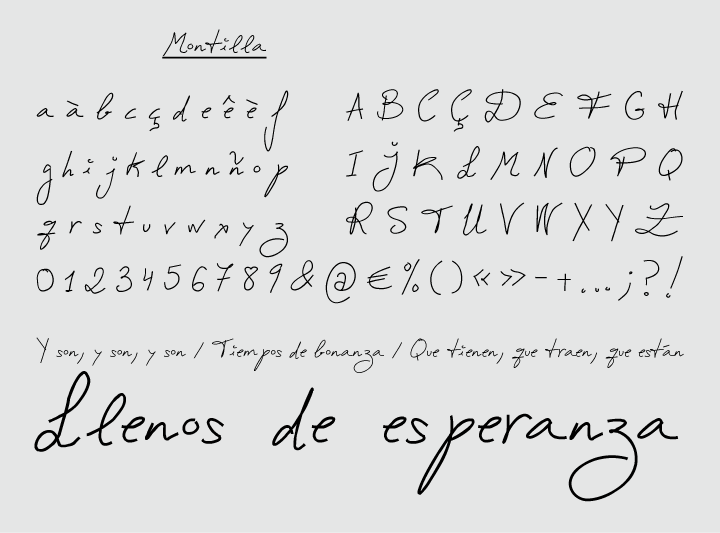 Montilla
a à b c ç d e ê è f
A B C Ç D E F G H
g h i ǰ k l m n ñ o p
I J̌ K L M N O P Q
q r s t u v w x y z
R S T U V W X Y Z
0 1 2 3 4 5 6 7 8 9 & @ € % ( ) « » - + ... ; ? !
Y son, y son, y son / Tiempos de bonanza / Que tienen, que traen, que están
Llenos de esperanza